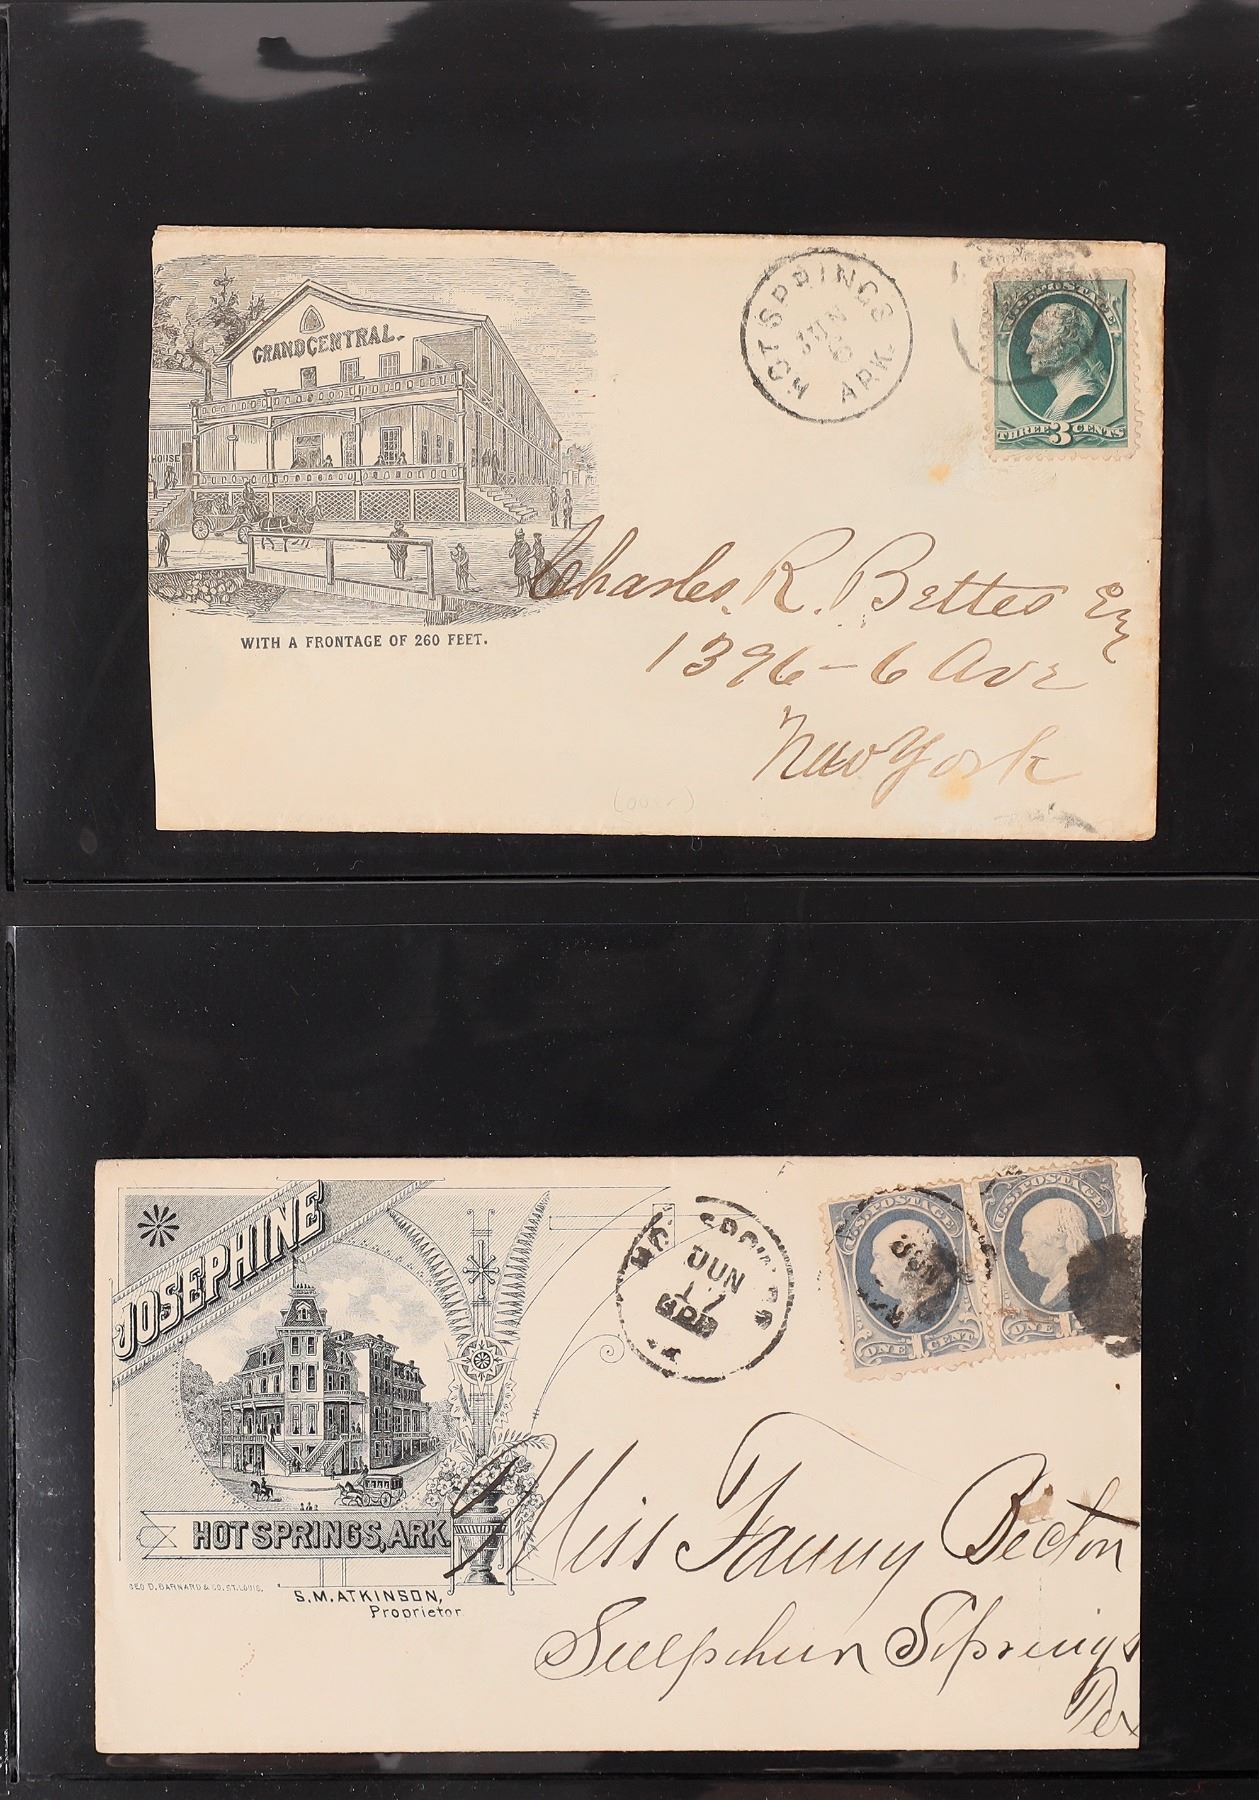 GRAND CENTRAL.
HOUSE
WITH A FRONTAGE OF 260 FEET.
HOT SPRINGS
JUN
6
ARK.
U.S. POSTAGE
THREE 3 CENTS
Charles R. Bettes Esq
1396 - 6 Ave
New York
(over)
JOSEPHINE
HOT SPRINGS, ARK.
GEO D. BARNARD & CO. ST. LOUIS.
S.M. ATKINSON,
Proprietor
JUN
17
U.S. POSTAGE
ONE 1 CENT
U.S. POSTAGE
ONE 1
Miss Fanny Becton
Sulphur Springs
Tex